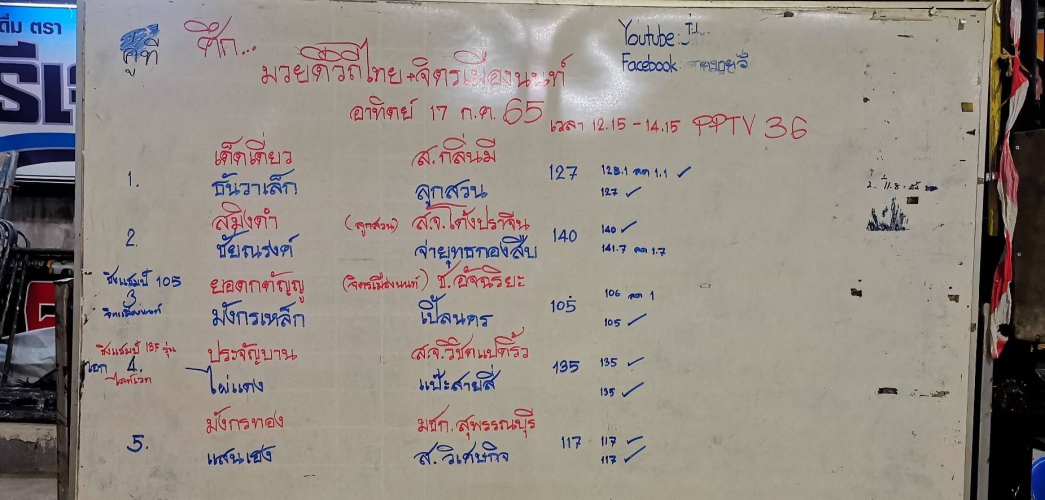 ดื่ม ตรา
คู่ที่
ศึก...
Youtube:
Facebook
มวยดีวิถีไทย+จิตรเมืองนนท์
อาทิตย์ 17 ก.ค. 65 เวลา 12.15 - 14.15 PPTV 36
เด็ดเดี่ยว ส.กลิ่นมี
1. 127 128.1 ลด 1.1 ✓
ธันวาเล็ก ลูกสวน 127 ✓
สมิงดำ (ลูกสวน) ส.จ.โต้งปราจีน
2. 140 140 ✓
ชัยณรงค์ จ่ายุทธกองสืบ 141.7 ลด 1.7
ชิงแชมป์ 105 ยอดกตัญญู (จิตรเมืองนนท์) ช.อัจฉริยะ
3 105 106 ลด 1
จิตรเมืองนนท์ มังกรเหล็ก เปี้ลนคร 105 ✓
ชิงแชมป์ 135 รุ่น ประจัญบาน ส.จ.วิชิตแปดริ้ว
4. 135 135 ✓
ไลท์เวท ไผ่แดง แป๊ะสายสี่ 135 ✓
มังกรทอง มชก.สุพรรณบุรี
5. 117 117 ✓
แสนเฮง ส.วิเศษกิจ 117 ✓